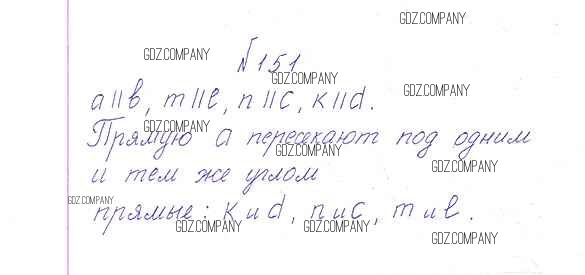 GDZ.COMPANY
GDZ.COMPANY
№151
GDZ.COMPANY
GDZ.COMPANY
a||b, m||l, n||c, k||d.
GDZ.COMPANY
Прямую a пересекают под одним
GDZ.COMPANY
GDZ.COMPANY
и тем же углом
GDZ.COMPANY
прямые: k и d, n и c, m и l.
GDZ.COMPANY
GDZ.COMPANY
GDZ.COMPANY